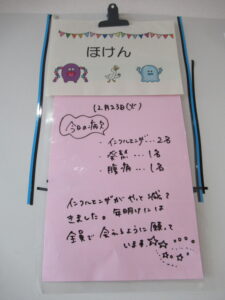 ほけん
12月23日(火)
今日の病欠
・インフルエンザ…2名
・発熱…1名
・腹痛…1名
インフルエンザがやっと減って
きました。年明けには
全員で会えるように願って
います☆☆☆